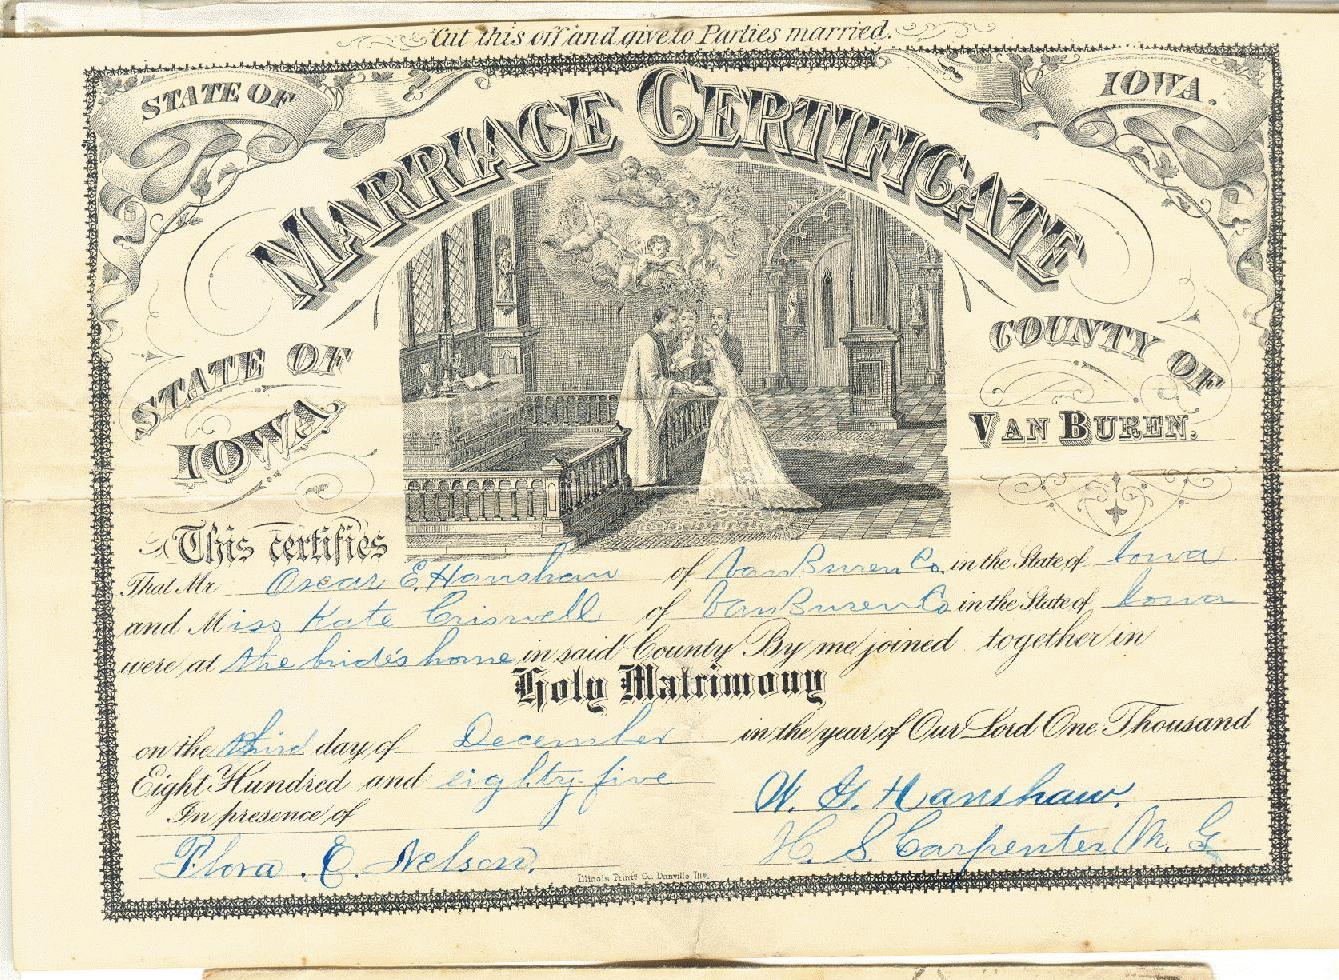 Cut this off and give to Parties married.
STATE OF
IOWA.
MARRIAGE CERTIFICATE
STATE OF
IOWA
COUNTY OF
VAN BUREN.
This certifies
That Mr. Oscar E. Hanshaw of Van Buren Co. in the State of Iowa
and Miss Kate Criswell of Van Buren Co in the State of Iowa
were at the bride's home in said County By me joined together in
Holy Matrimony
on the third day of December in the year of Our Lord One Thousand
Eight Hundred and eighty-five
In presence of
W. G. Hanshaw.
Flora. E. Nelson.
H. S. Carpenter M. G
Illinois Print'g Co. Danville Ills.